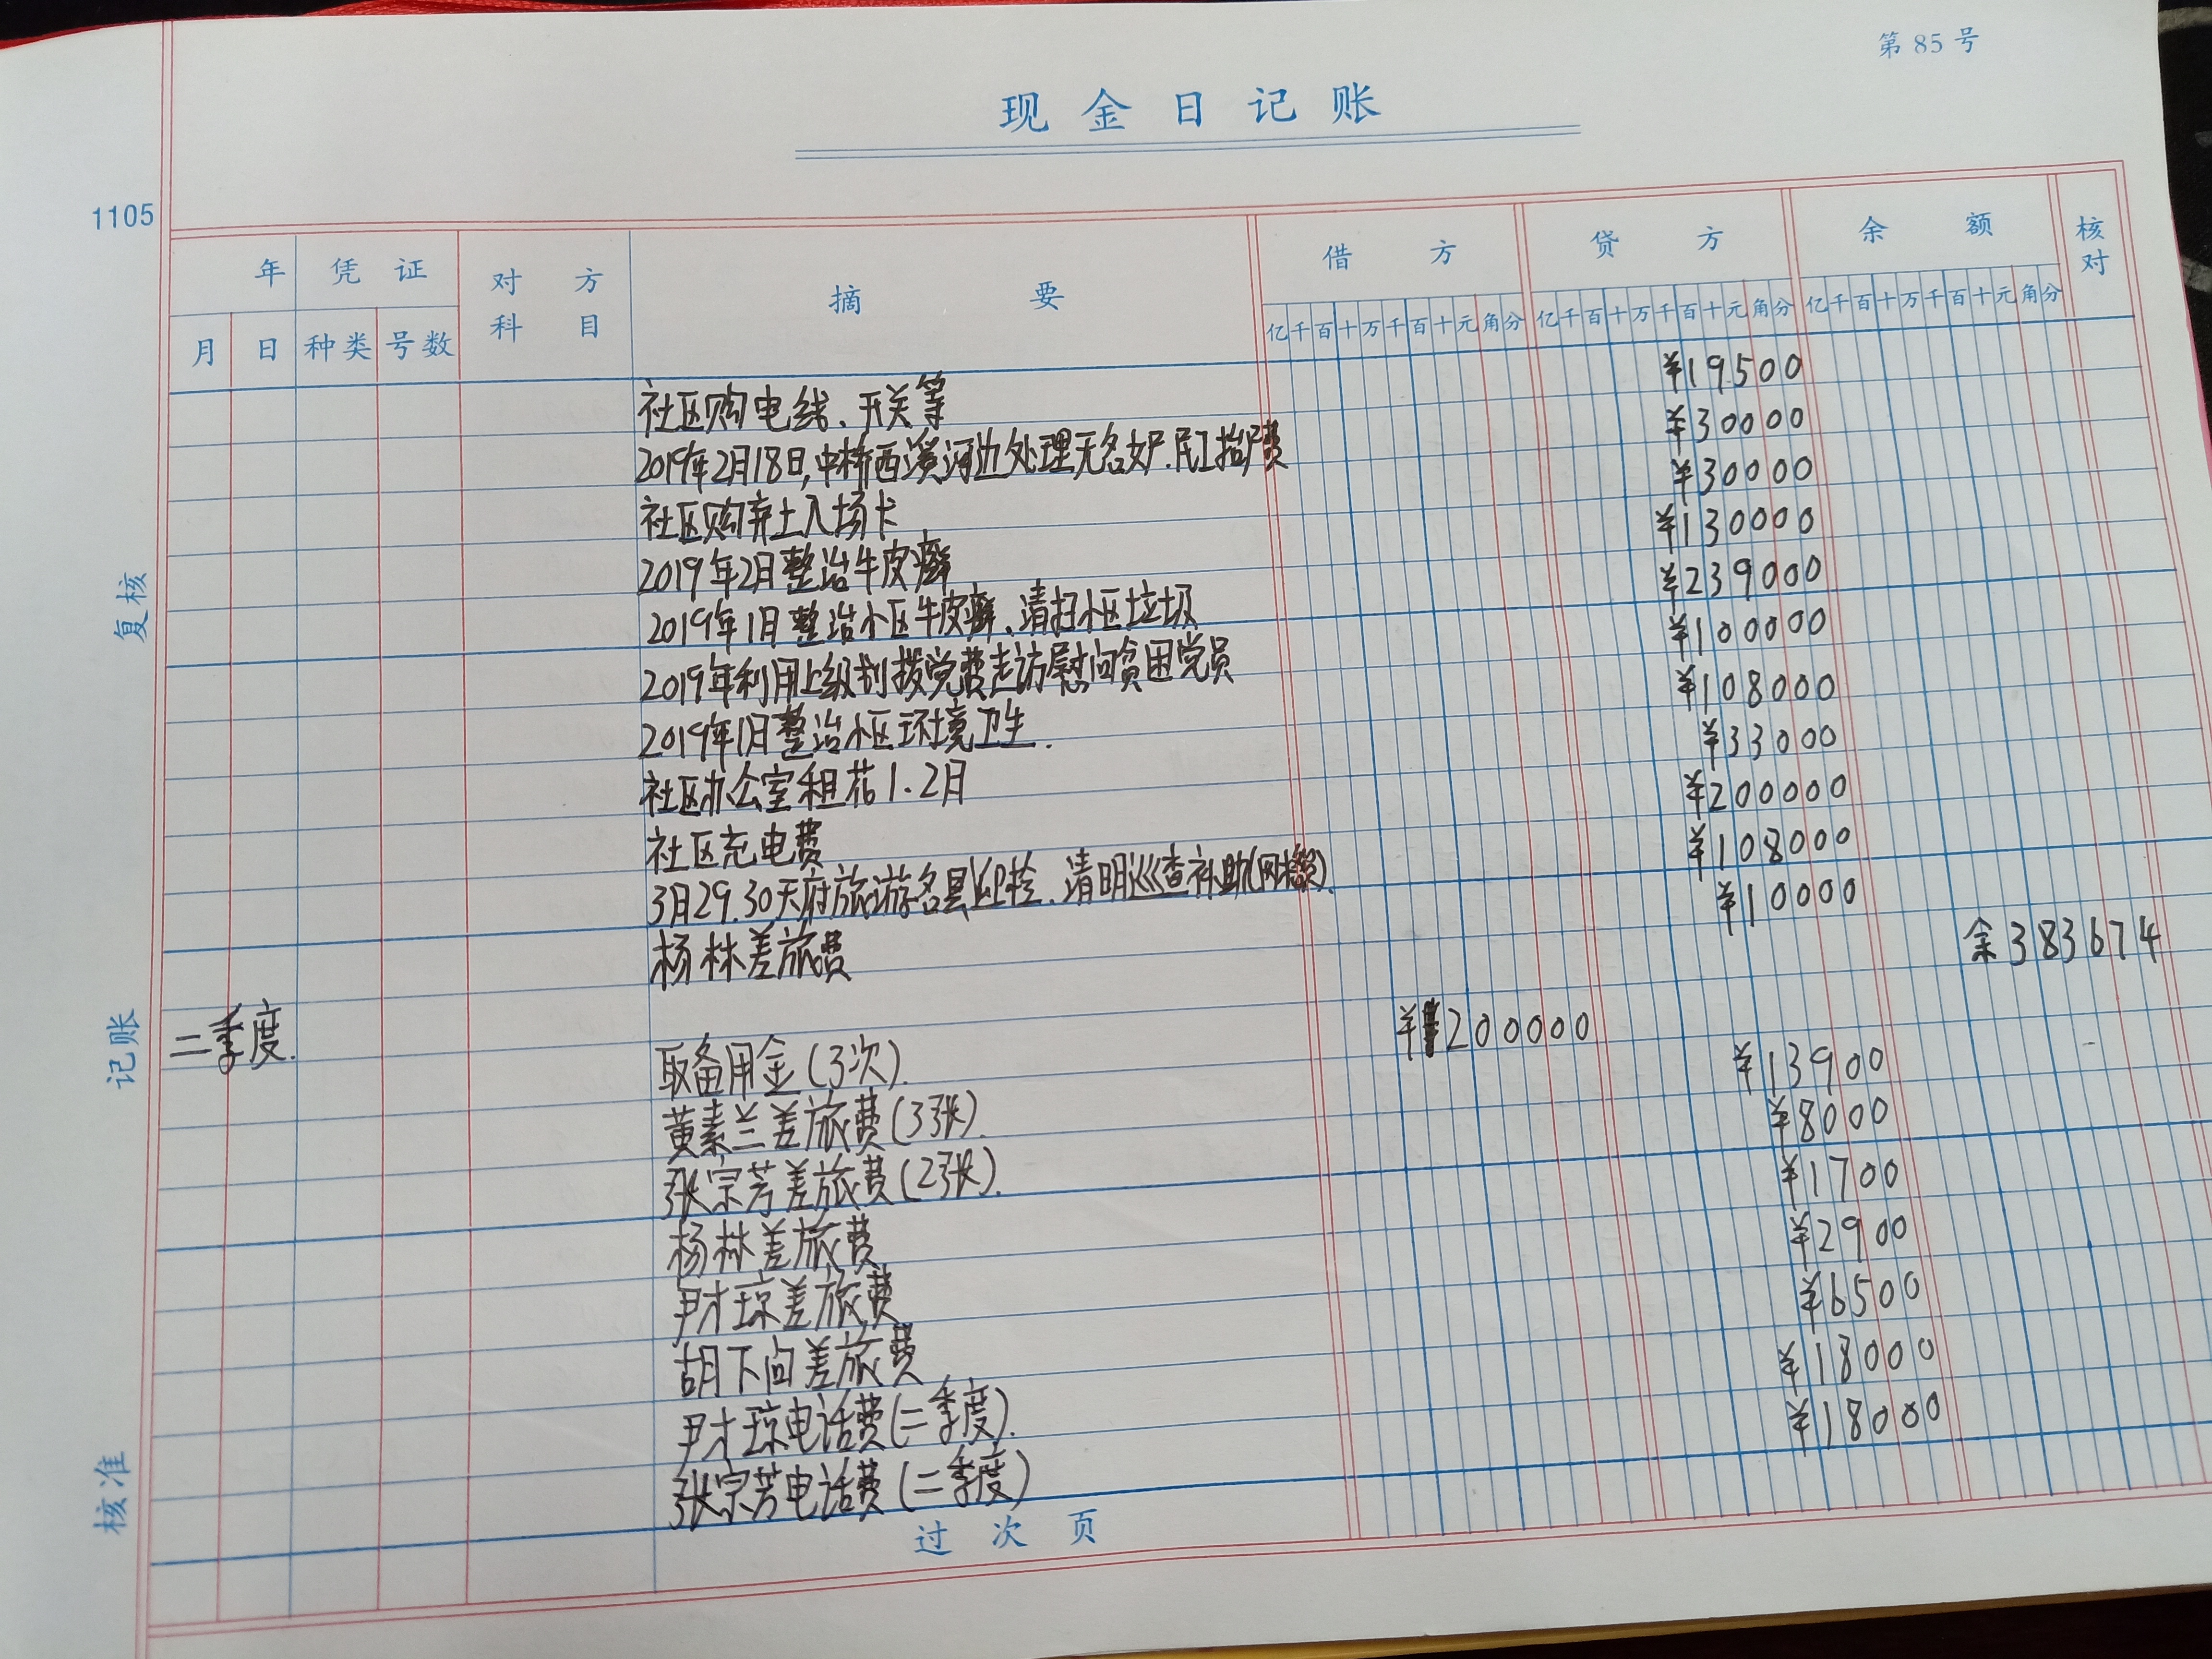 第 85 号
现金日记账
1105
年 凭证 对方科目 摘要 借方 贷方 余额 核对
月 日 种类 号数 亿千百十万千百十元角分 亿千百十万千百十元角分 亿千百十万千百十元角分
社区购电线、开关等 ¥19500
2019年2月18日,中桥西溪河边处理无名女尸.民工抬尸费 ¥30000
社区购弃土入场卡 ¥30000
2019年2月整治牛皮癣 ¥130000
2019年1月整治小区牛皮癣、清扫小区垃圾 ¥239000
2019年利用上级划拨党费走访慰问贫困党员 ¥100000
2019年1月整治小区环境卫生. ¥108000
社区办公室租花1.2月 ¥33000
社区充电费 ¥200000
3月29.30天府旅游名县 清明巡查补助 ¥108000
杨林差旅费 ¥10000
余383674
二季度.
取备用金(3次). ¥1200000
黄素兰差旅费(3张). ¥13900
张宗芳差旅费(2张). ¥8000
杨林差旅费 ¥1700
尹才琼差旅费 ¥2900
胡下向差旅费 ¥6500
尹才琼电话费(二季度). ¥18000
张宗芳电话费(二季度) ¥18000
过次页
复核
记账
核准